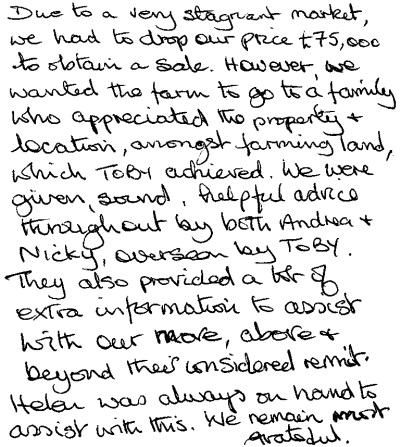 Due to a very stagnant market,
we had to drop our price £75,000
to obtain a sale. However, we
wanted the farm to go to a family
who appreciated the property +
location, amongst farming land,
which TOBY achieved. We were
given, sound, helpful advice
throughout by both Andrea +
Nicky, overseen by TOBY.
They also provided a lot of
extra information to assist
with our move, above +
beyond their considered remit.
Helen was always on hand to
assist with this. We remain most
grateful.